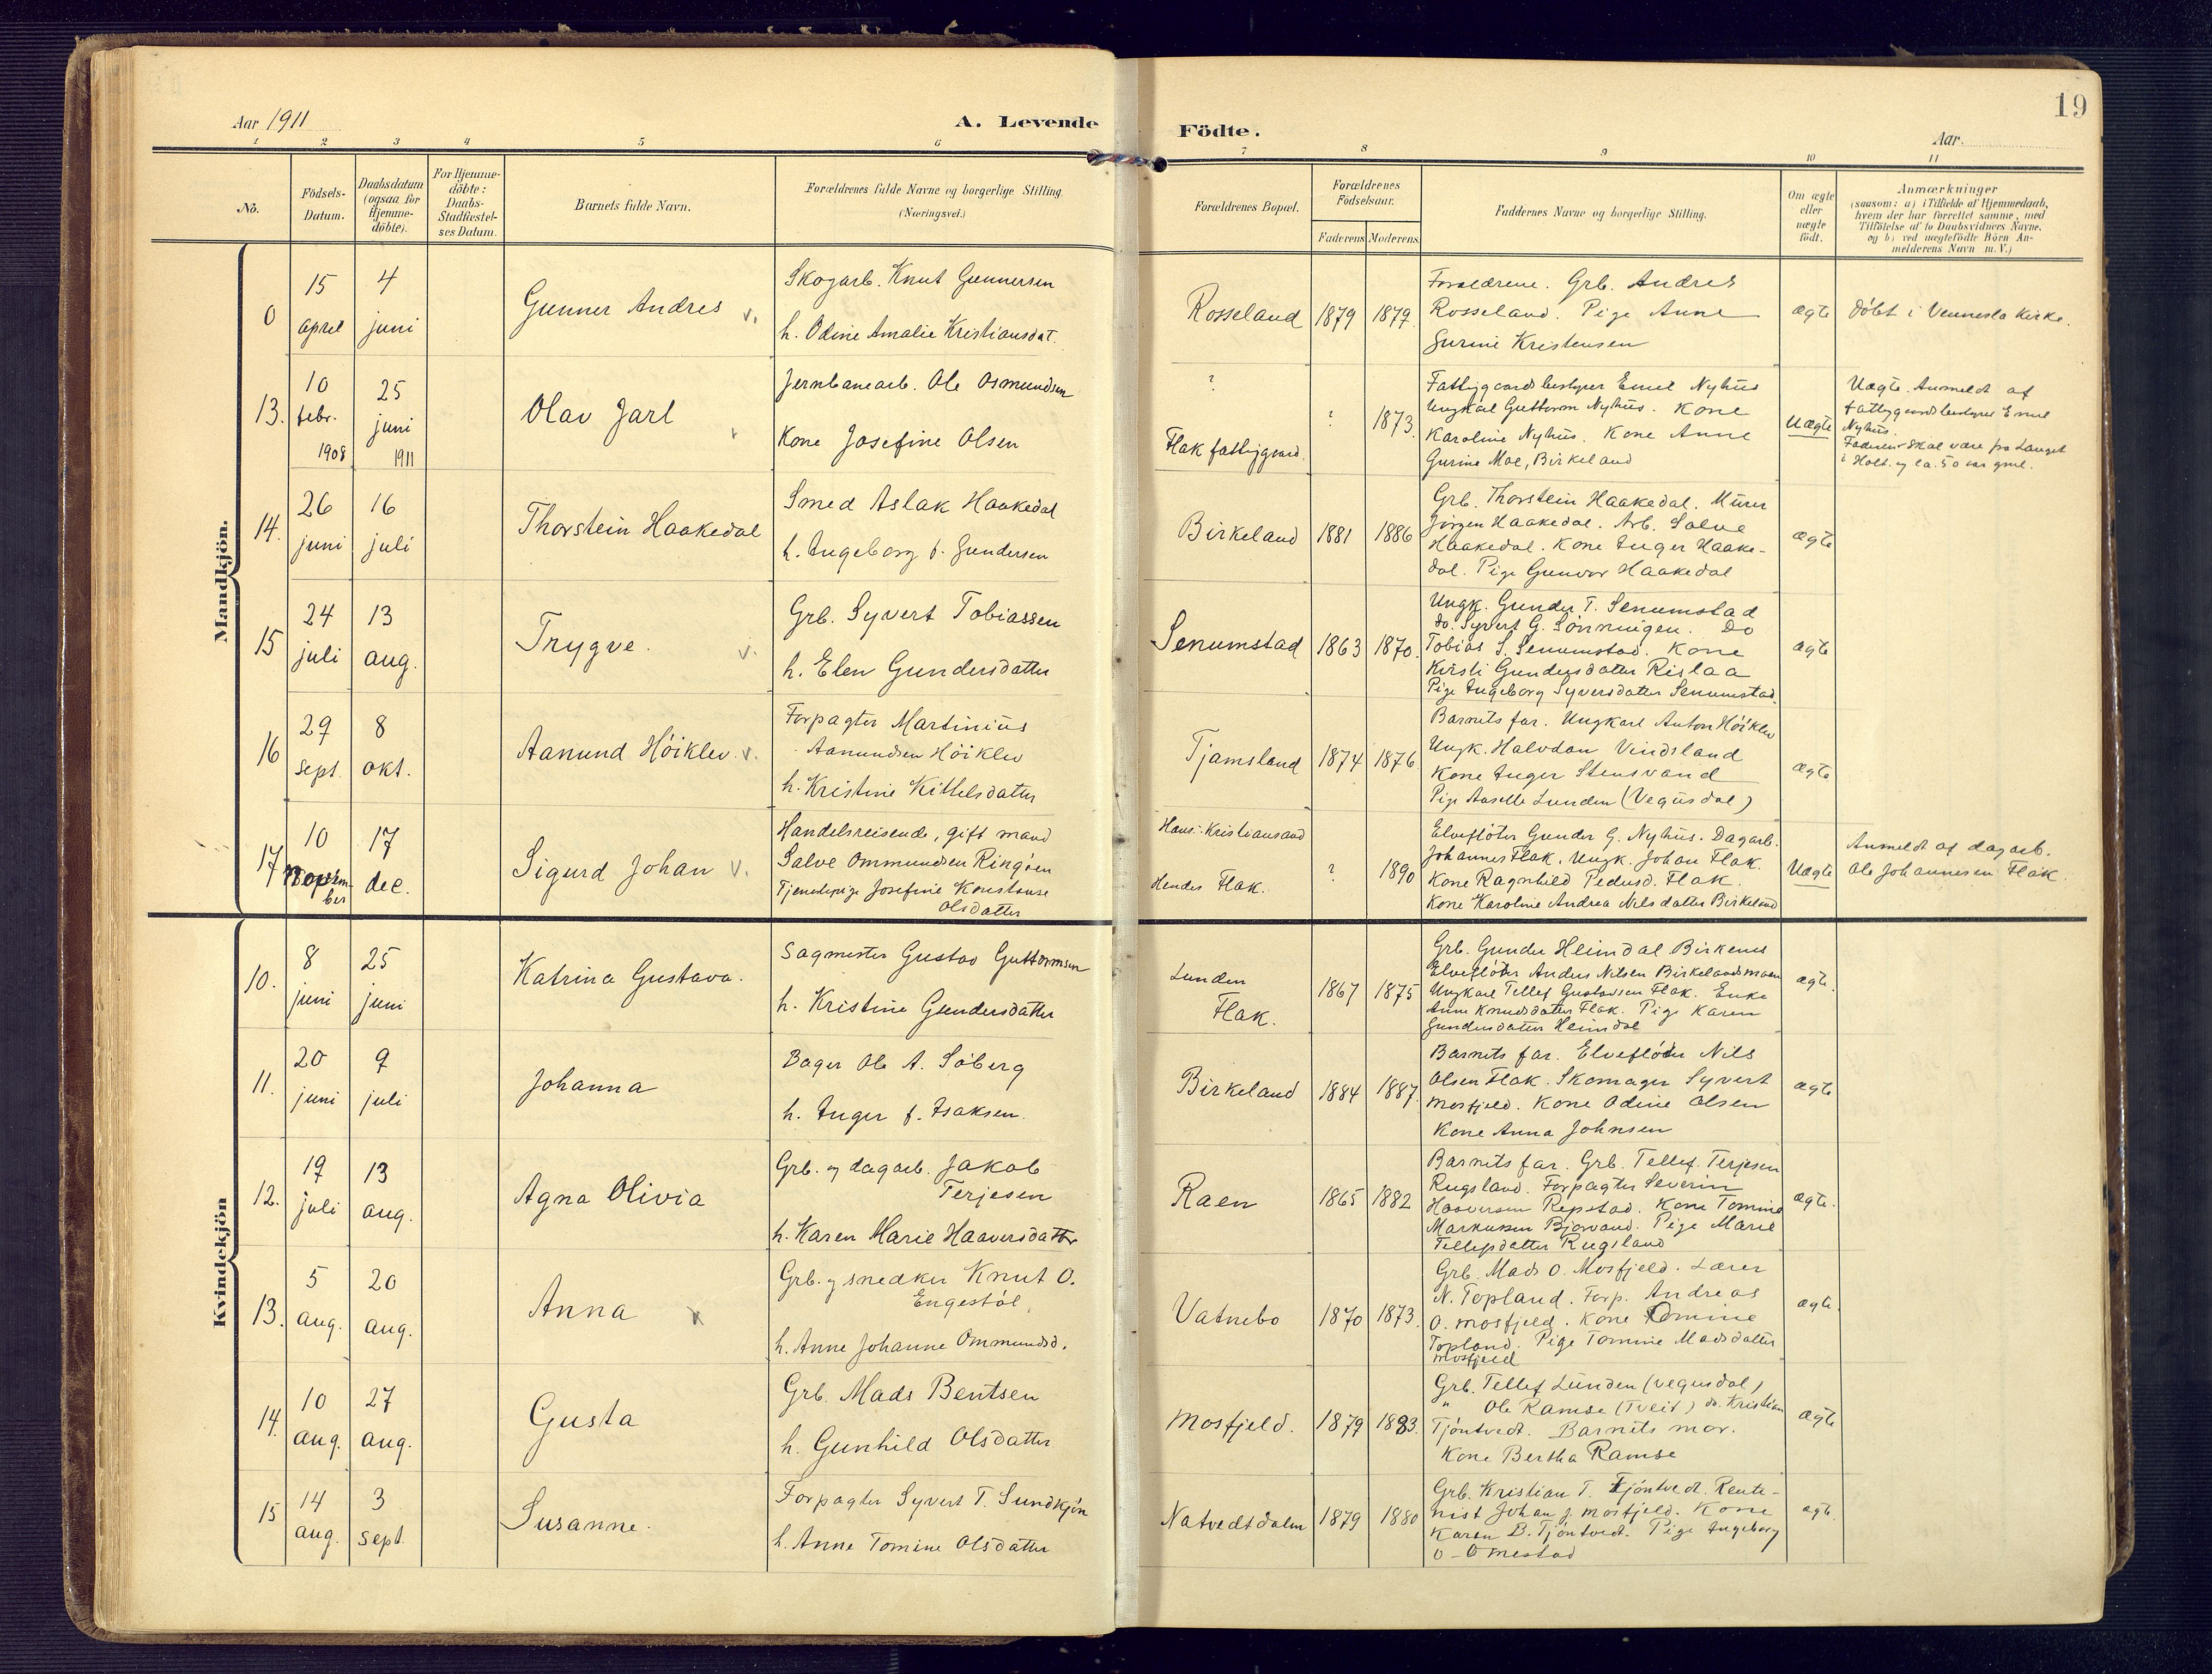 19
Aar 1911
A. Levende
Födte.
Aar.
1 2 3 4 5 6 7 8 9 10 11
No.
Födsels-
Datum.
Daabsdatum
(ogsaa for
Hjemme-
döbte).
For Hjemme-
döbte:
Daabs-
Stadfæstel-
ses Datum.
Barnets fulde Navn.
Forældrenes fulde Navne og borgerlige Stilling
(Næringsvei.)
Forældrenes Bopæl.
Forældrenes
Födselsaar.
Faderens Moderens.
Faddernes Navne og borgerlige Stilling.
Om ægte
eller
uægte
födt.
Anmærkninger
(saasom: a) i Tilfælde af Hjemmedaab,
hvem der har forrettet samme, med
Tilföielse af to Daabsvidners Navne,
og b) ved uægtefödte Börn An-
melderens Navn m. V.)
Mandkjön.
0
15
april
4
juni
Gunner Andres v.
Skogarb. Knut Gunnersen
h. Odine Amalie Kristiansdat.
Rosseland
1879
1879.
Forældrene. Grb. Andres
Rosseland. Pige Anne
Gurine Kristensen
ægte
döbt i Vennesla kirke.
13.
10
febr.
1908
25
juni
1911
Olav Jarl
Jernbanearb. Ole Osmundsen
Kone Josefine Olsen
?
Flak fattiggaard.
?
1873.
Fattiggaardsbestyrer Emil Nyhus
Ungkarl Guttorm Nyhus. Kone
Karoline Nyhus. Kone Anne
Gurine Moe, Birkeland
Uægte
Uægte. Anmeldt af
fattiggaardsbestyrer Emil
Nyhus.
Faderen skal være fra Langet
i Holt. og ca. 50 aar gml.
14.
26
juni
16
juli
Thorstein Haakedal
Smed Aslak Haakedal
h. Ingeborg f. Gundersen
Birkeland
1881
1886
Grb. Thorstein Haakedal. Murer
Jörgen Haakedal. Arb. Salve
Haakedal. Kone Inger Haake-
dal. Pige Gunvor Haakedal
ægte
15
24
juli
13
aug.
Trygve. v.
Grb. Syvert Tobiassen
h. Elen Gundersdatter
Senumstad
1863
1870.
Ungk. Gunder T. Senumstad
do. Syvert G. Sönningen. Do
Tobias S. Senumstad. Kone
Kirsti Gundersdatter Rislaa
Pige Ingeborg Syversdatter Senumstad.
ægte
16
29
sept.
8
okt.
Aanund Höiklev. v.
Forpagter Martinius
Aanundsen Höiklev
h. Kristine Kittelsdatter
Tjamsland
1874
1876
Barnets far. Ungkarl Anton Höiklev
Ungk. Halvdan Vindsland
Kone Inger Stensvand
Pige Aaselle Lunden (Vegusdal)
ægte
17
10
ber
17
dec.
Sigurd Johan v.
Handelsreisende, gift mand
Salve Ommundsen Ringöen
Tjenestepige Josefine Konstanse
Olsdatter
Hans: Kristiansand
Hendes Flak.
?
1890
Elveflöter Gunder G. Nyhus. Dagarb.
Johannes Flak. Ungk. Johan Flak.
Kone Ragnhild Pedersd. Flak.
Kone Karoline Andrea Nilsdatter Birkeland
Uægte
Anmeldt af dagarb.
Ole Johannesen Flak.
Kvindekjön
10.
8
juni
25
juni
Katrina Gustava.
Sagmester Gustav Guttormsen
h. Kristine Gundersdatter
Lunden
Flak.
1867
1875
Grb. Gunder Heimdal Birkenes
Elveflöter Anders Nilsen Birkelandsmoen
Ungkarl Tellef Gustavsen Flak. Enke
Anne Knudsdatter Flak. Pige Karen
Gundersdatter Heimdal
ægte.
11.
20
juni
9
juli
Johanna
Bager Ole A. Söberg
h. Inger f. Isaksen.
Birkeland
1884
1887.
Barnets far. Elveflöter Nils
Olsen Flak. Skomager Syvert
Mosfjeld. Kone Odine Olsen
Kone Anna Johnsen
ægte
12.
19
juli
13
aug.
Agna Olivia
Grb. og dagarb. Jakob
Terjesen
h. Karen Marie Haaversdatter
Raen
1865
1882
Barnets far. Grb. Tellef Terjesen
Rugsland. Forpagter Severin
Haaversen Repstad. Kone Tomine
Markussen Bjorvand. Pige Marie
Tellefsdatter Rugsland
ægte.
13.
5
aug.
20
aug.
Anna
Grb. og snedker Knut O.
Engestöl,
h. Anne Johanne Ommundsd.
Vatnebo
1870
1873.
Grb. Mads O. Mosfjeld. Lærer
N. Topland. Forp. Andreas
O. Mosfjeld. Kone Omine
Topland. Pige Tomine Madsdatter
Mosfjeld
ægte.
14.
10
aug.
27
aug.
Gusta
Grb. Mads Bentsen
h. Gunhild Olsdatter
Mosfjeld.
1879
1883.
Grb. Tellef Lunden (Vegusdal)
" Ole Ramse (Tveit) do. Kristian
Tjöntvedt. Barnets mor.
Kone Bertha Ramse
ægte
15
14
aug.
3
sept.
Susanne.
Forpagter Syvert T. Sundkjön
h. Anne Tomine Olsdatter
Natvedtdalen
1879
1880
Grb. Kristian T. Tjöntvedt. Rente-
nist Johan J. Mosfjeld. Kone
Karen B. Tjöntvedt. Pige Ingeborg
O. Omestad
ægte.